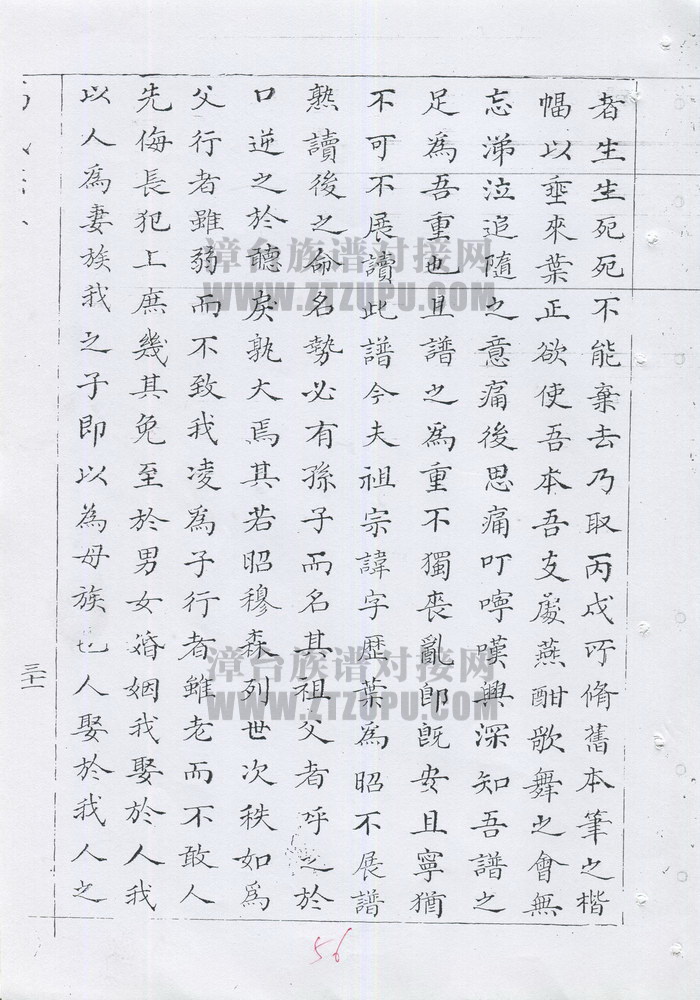 者生生死死不能棄去乃取丙戌所脩舊本筆之楷
幅以垂來葉正欲使吾本吾支處燕酣歌舞之會無
忘涕泣追隨之意痛後思痛叮嚀嘆興深知吾譜之
足為吾重也且譜之為重不獨喪亂卽旣安且寧猶
不可不展讀此譜今夫祖宗諱字歷葉為昭不展譜
熟讀後之命名勢必有孫子而名其祖父者呼之於
口逆之於聽戾孰大焉其若昭穆森列世次秩如為
父行者雖弱而不致我凌為子行者雖老而不敢人
先侮長犯上庶幾其免至於男女婚姻我娶於人我
以人為妻族我之子即以為母族也人娶於我人之
三十一
56
漳台族谱对接网
WWW.ZTZUPU.COM
漳台族谱对接网
WWW.ZTZUPU.COM